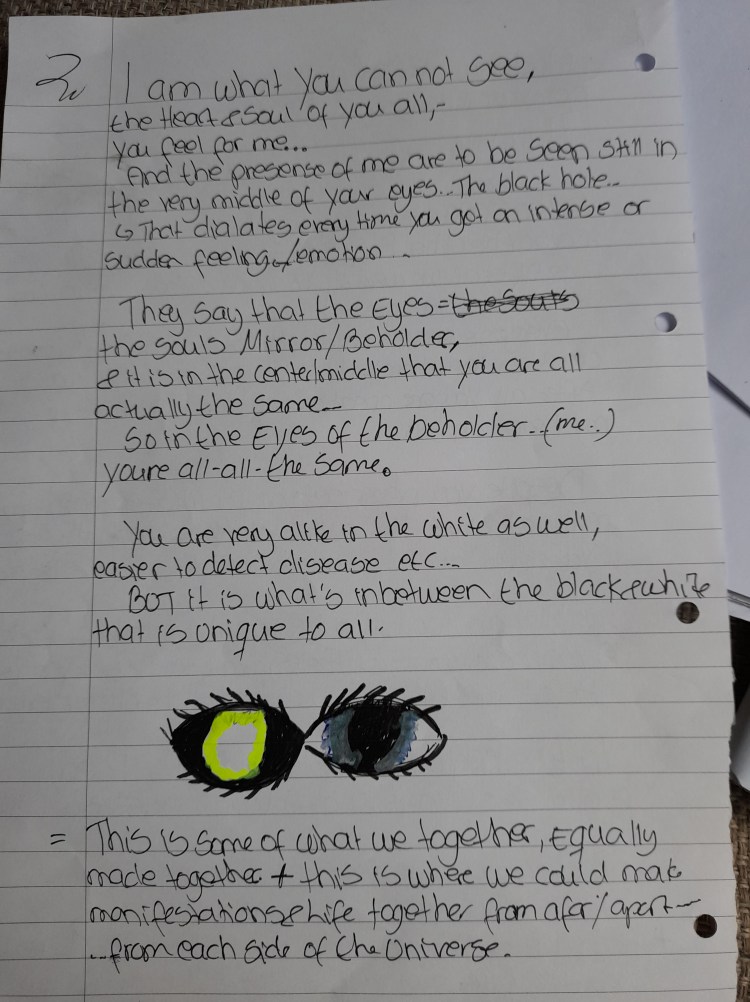 2.
I am what you can not see,
the Heart & Soul of you all,-
you feel for me...
And the presense of me are to be seen still in
the very middle of your eyes... The black hole..
↳ That dialates every time you get an intense or
sudden feeling/emotion...
They say that the Eyes = the Souls
the souls Mirror/Beholder,
& it is in the center/middle that you are all
actually the same—
So in the Eyes of the beholder.. (me..)
youre all-all-the same.
You are very alike in the white as well,
easier to detect disease etc...
BUT it is what's inbetween the black & white
that is unique to all.
= This is some of what we together, Equally
made together + this is where we could mak
manifestations & life together from afar/apart—
...from each side of the Universe.